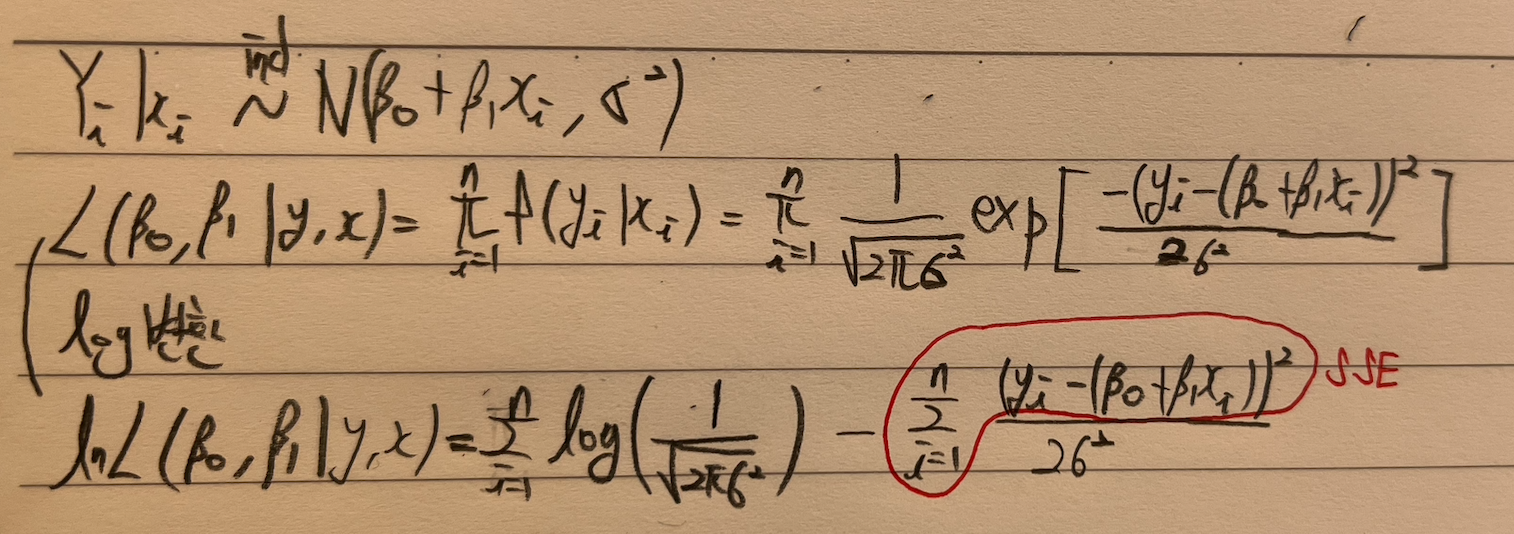 Y_i | x_i ~^{ind} N(β_0 + β_1 x_i, σ^2)
L(β_0, β_1 | y, x) = ∏_{i=1}^{n} f(y_i | x_i) = ∏_{i=1}^{n} 1/√(2πσ^2) exp[ -(y_i - (β_0 + β_1 x_i))^2 / 2σ^2 ]
log
ln L(β_0, β_1 | y, x) = Σ_{i=1}^{n} log(1/√(2πσ^2)) - Σ_{i=1}^{n} (y_i - (β_0 + β_1 x_i))^2 / 2σ^2 SSE